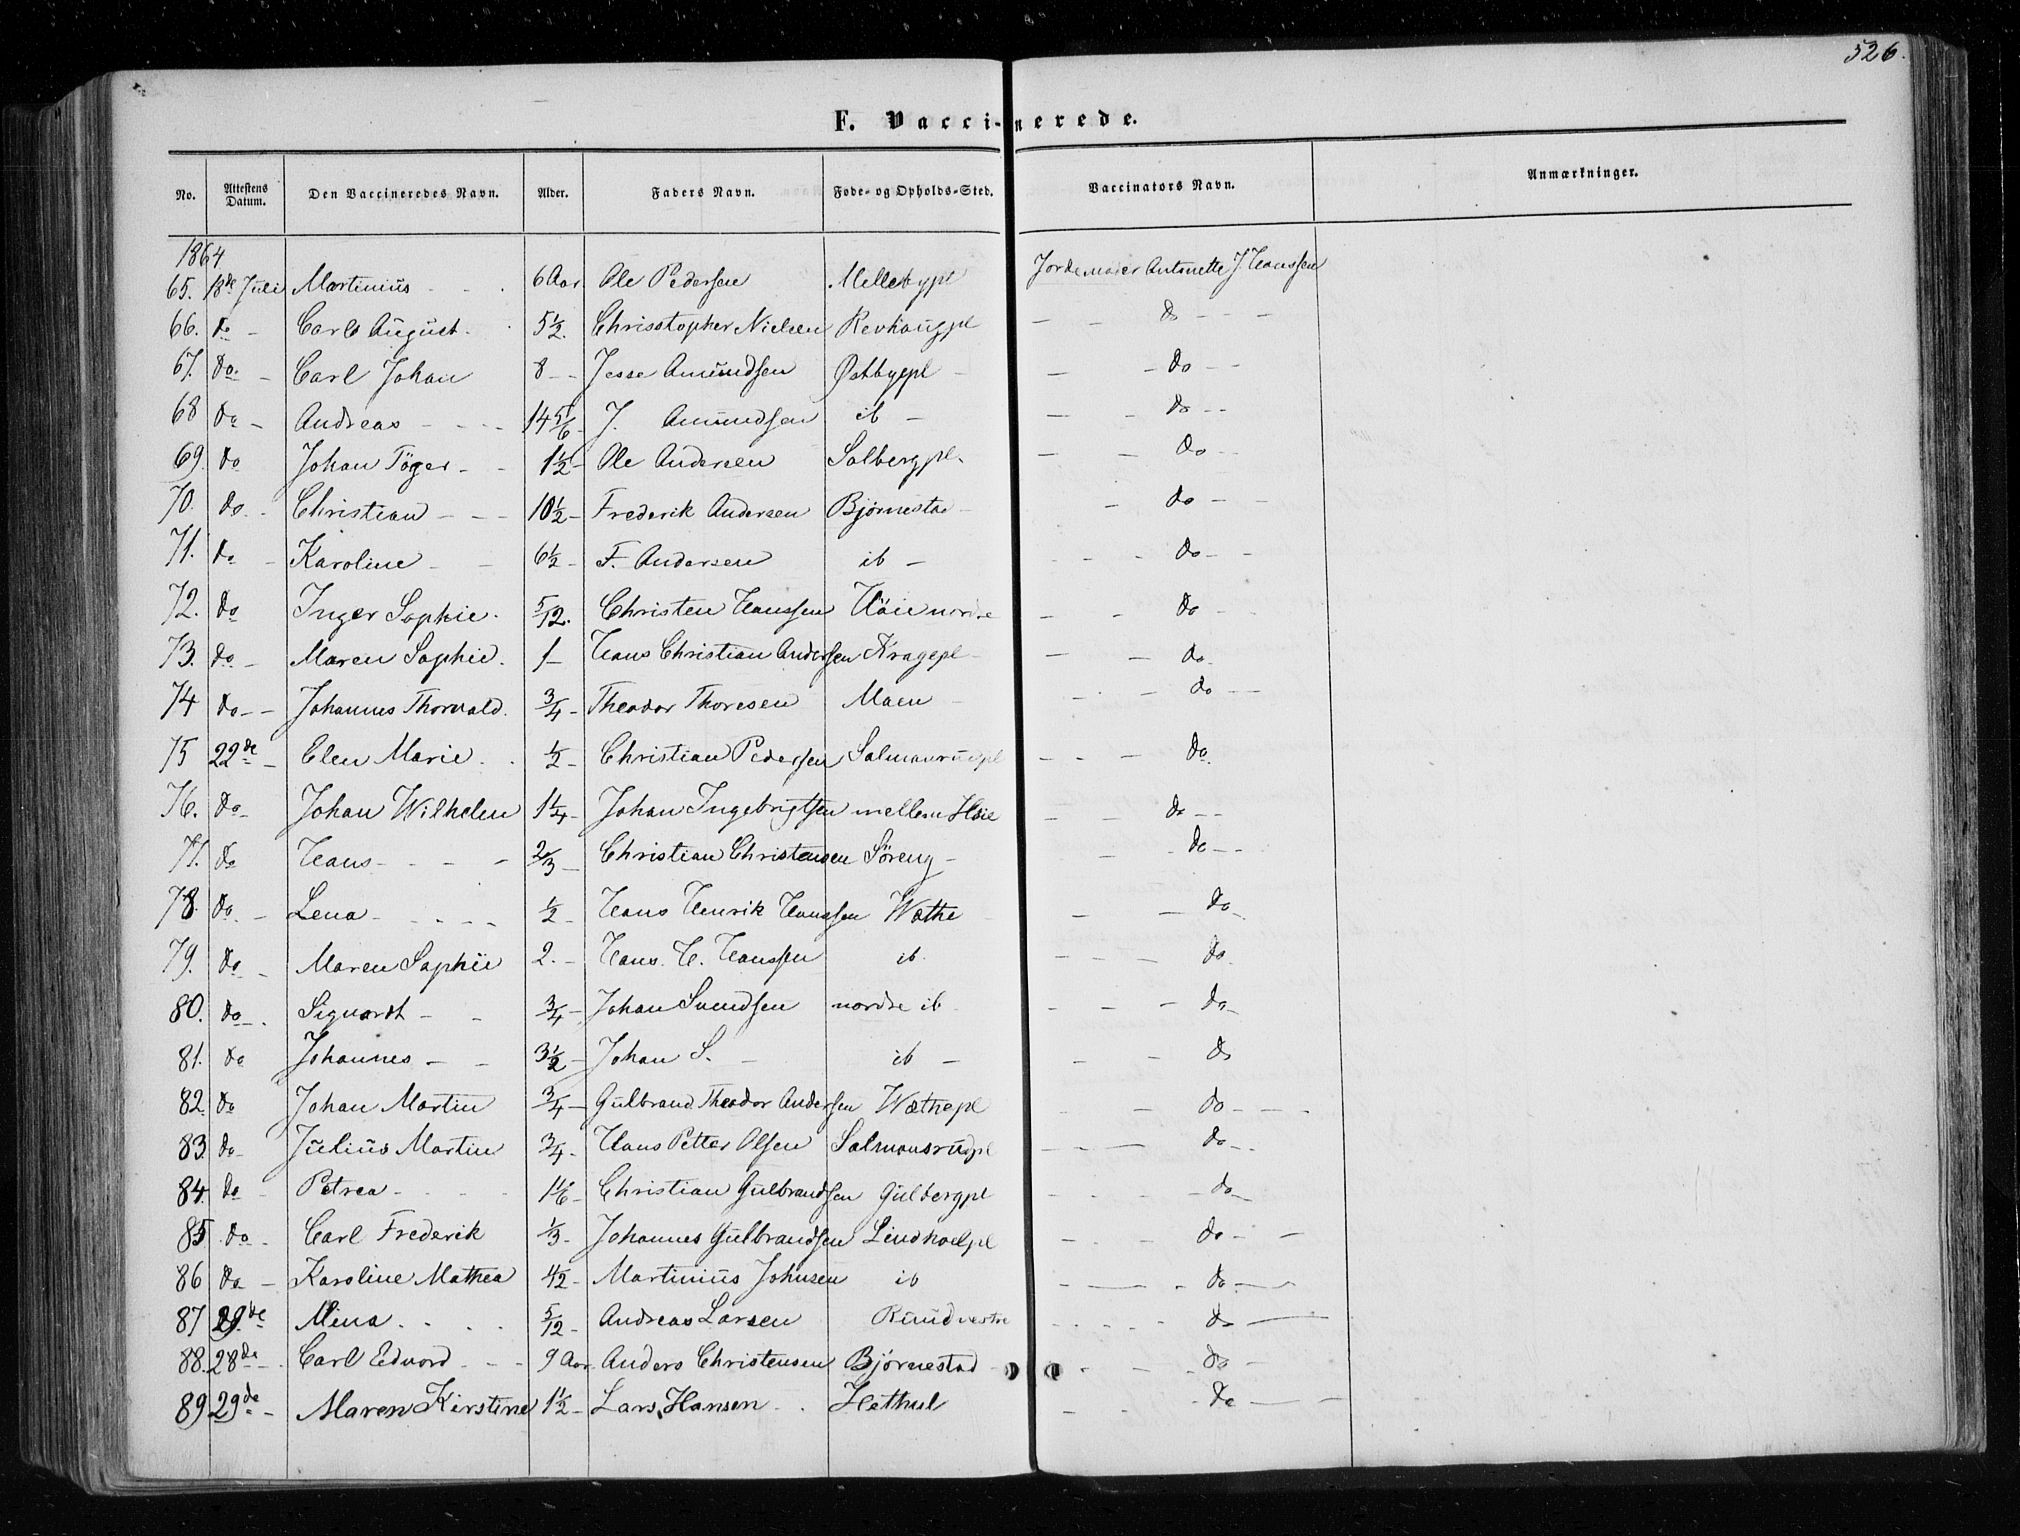 526.
F. Vaccinerede.
No. Attestens Datum. Den Vaccineredes Navn. Alder. Faders Navn. Føde- og Opholds-Sted. Vaccinators Navn. Anmærkninger.
1864
65. 18de Juli Martinius - - 6 Aar Ole Pedersen Mellebypl Jordemoder Antonette J Hanssen
66. do - Carl August. 5 1/2. Chrisstopher Nielsen Revhaugpl - - do - - -
67. do. - Carl Johan 8 - - Jesse Amundsen Østbypl - - - do - -
68 do - Andreas - - - - 14 5/6 - J. Amundsen ib - - - do - -
69. do Johan Töger - - 1 1/2 - Ole Andersen Solbergpl. - - do - -
70. do - Christian - - - 10 1/2 - Frederik Andersen Bjørnestad - - do - -
71. do - Karoline - - 6 1/2 - F. Andersen ib - - - do - -
72. do Inger Sophie. 5/12. Christen Hanssen Höie nordre - - do -
73. do - Maren Sophie. 1 - Hans Christian Anderssen Kragepl - - - do -
74 do - - Johannes Thorvald. 3/4 - Theodor Thoresen Moen - - - - do - -
75 22de - Elen Marie - . 1/2 - Christian Pederssen Salmonrudpl - - - do.
76. do - Johan Wilhelm 1 1/4 - Johan Ingebrigtsen mellem Høie - - do - -
77. do Hans - - - - 2/3 - Christian Christensen Söreng - - - do - -
78. do. - Lena - - - - - 1/2 - Hans Henrik Hanssen Wæthe - - - do -
79. do - Maren Sophie 2. - Hans H. Hanssen ib. - - - do.
80. do - . Siguardt - - 3/4 - Johan Svendsen nordre ib - - - do -
81. do Johannes - - 3 1/2 - Johan S. - ib - - - do
82. do Johan Martin 3/4 - Gulbrand Theodor Anderssen Wæthepl - - do - - -
83. do - Julius Martin 3/4 - Hans Petter Olsen Salmonsrudpl - - - do - -
84. do - Petrea - - - - 1 1/6 - Christian Gulbrandssen Gulbergpl - - - - do -
85 do - Carl Frederik 1/3 - Johannes Gulbrandssen Lindhoelpl - - - do - -
86 do - Karoline Mathea 4/2 - Martinius Johnsen ib - - - do -
87 29de Mina . . . . 5/12 - Andreas Larsen Ruud vestre - - - - do -
88. 28de - . Carl Edvard - - - 9 Aar. Anders Christensen Bjørnestad - - - do -
89 29de - Maren Kirstine 1 1/2 - Lars Hansen - . Hethul - - do - -